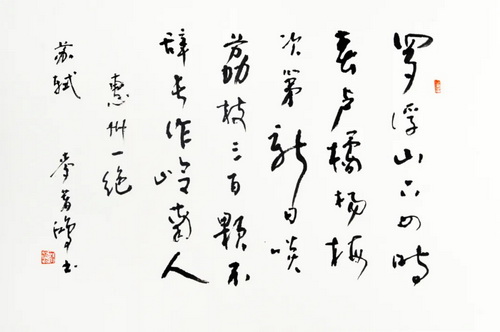 罗浮山下四時
春卢橘杨梅
次第新日啖
荔枝三百颗不
辞长作岭南人
惠州一绝
苏轼
书